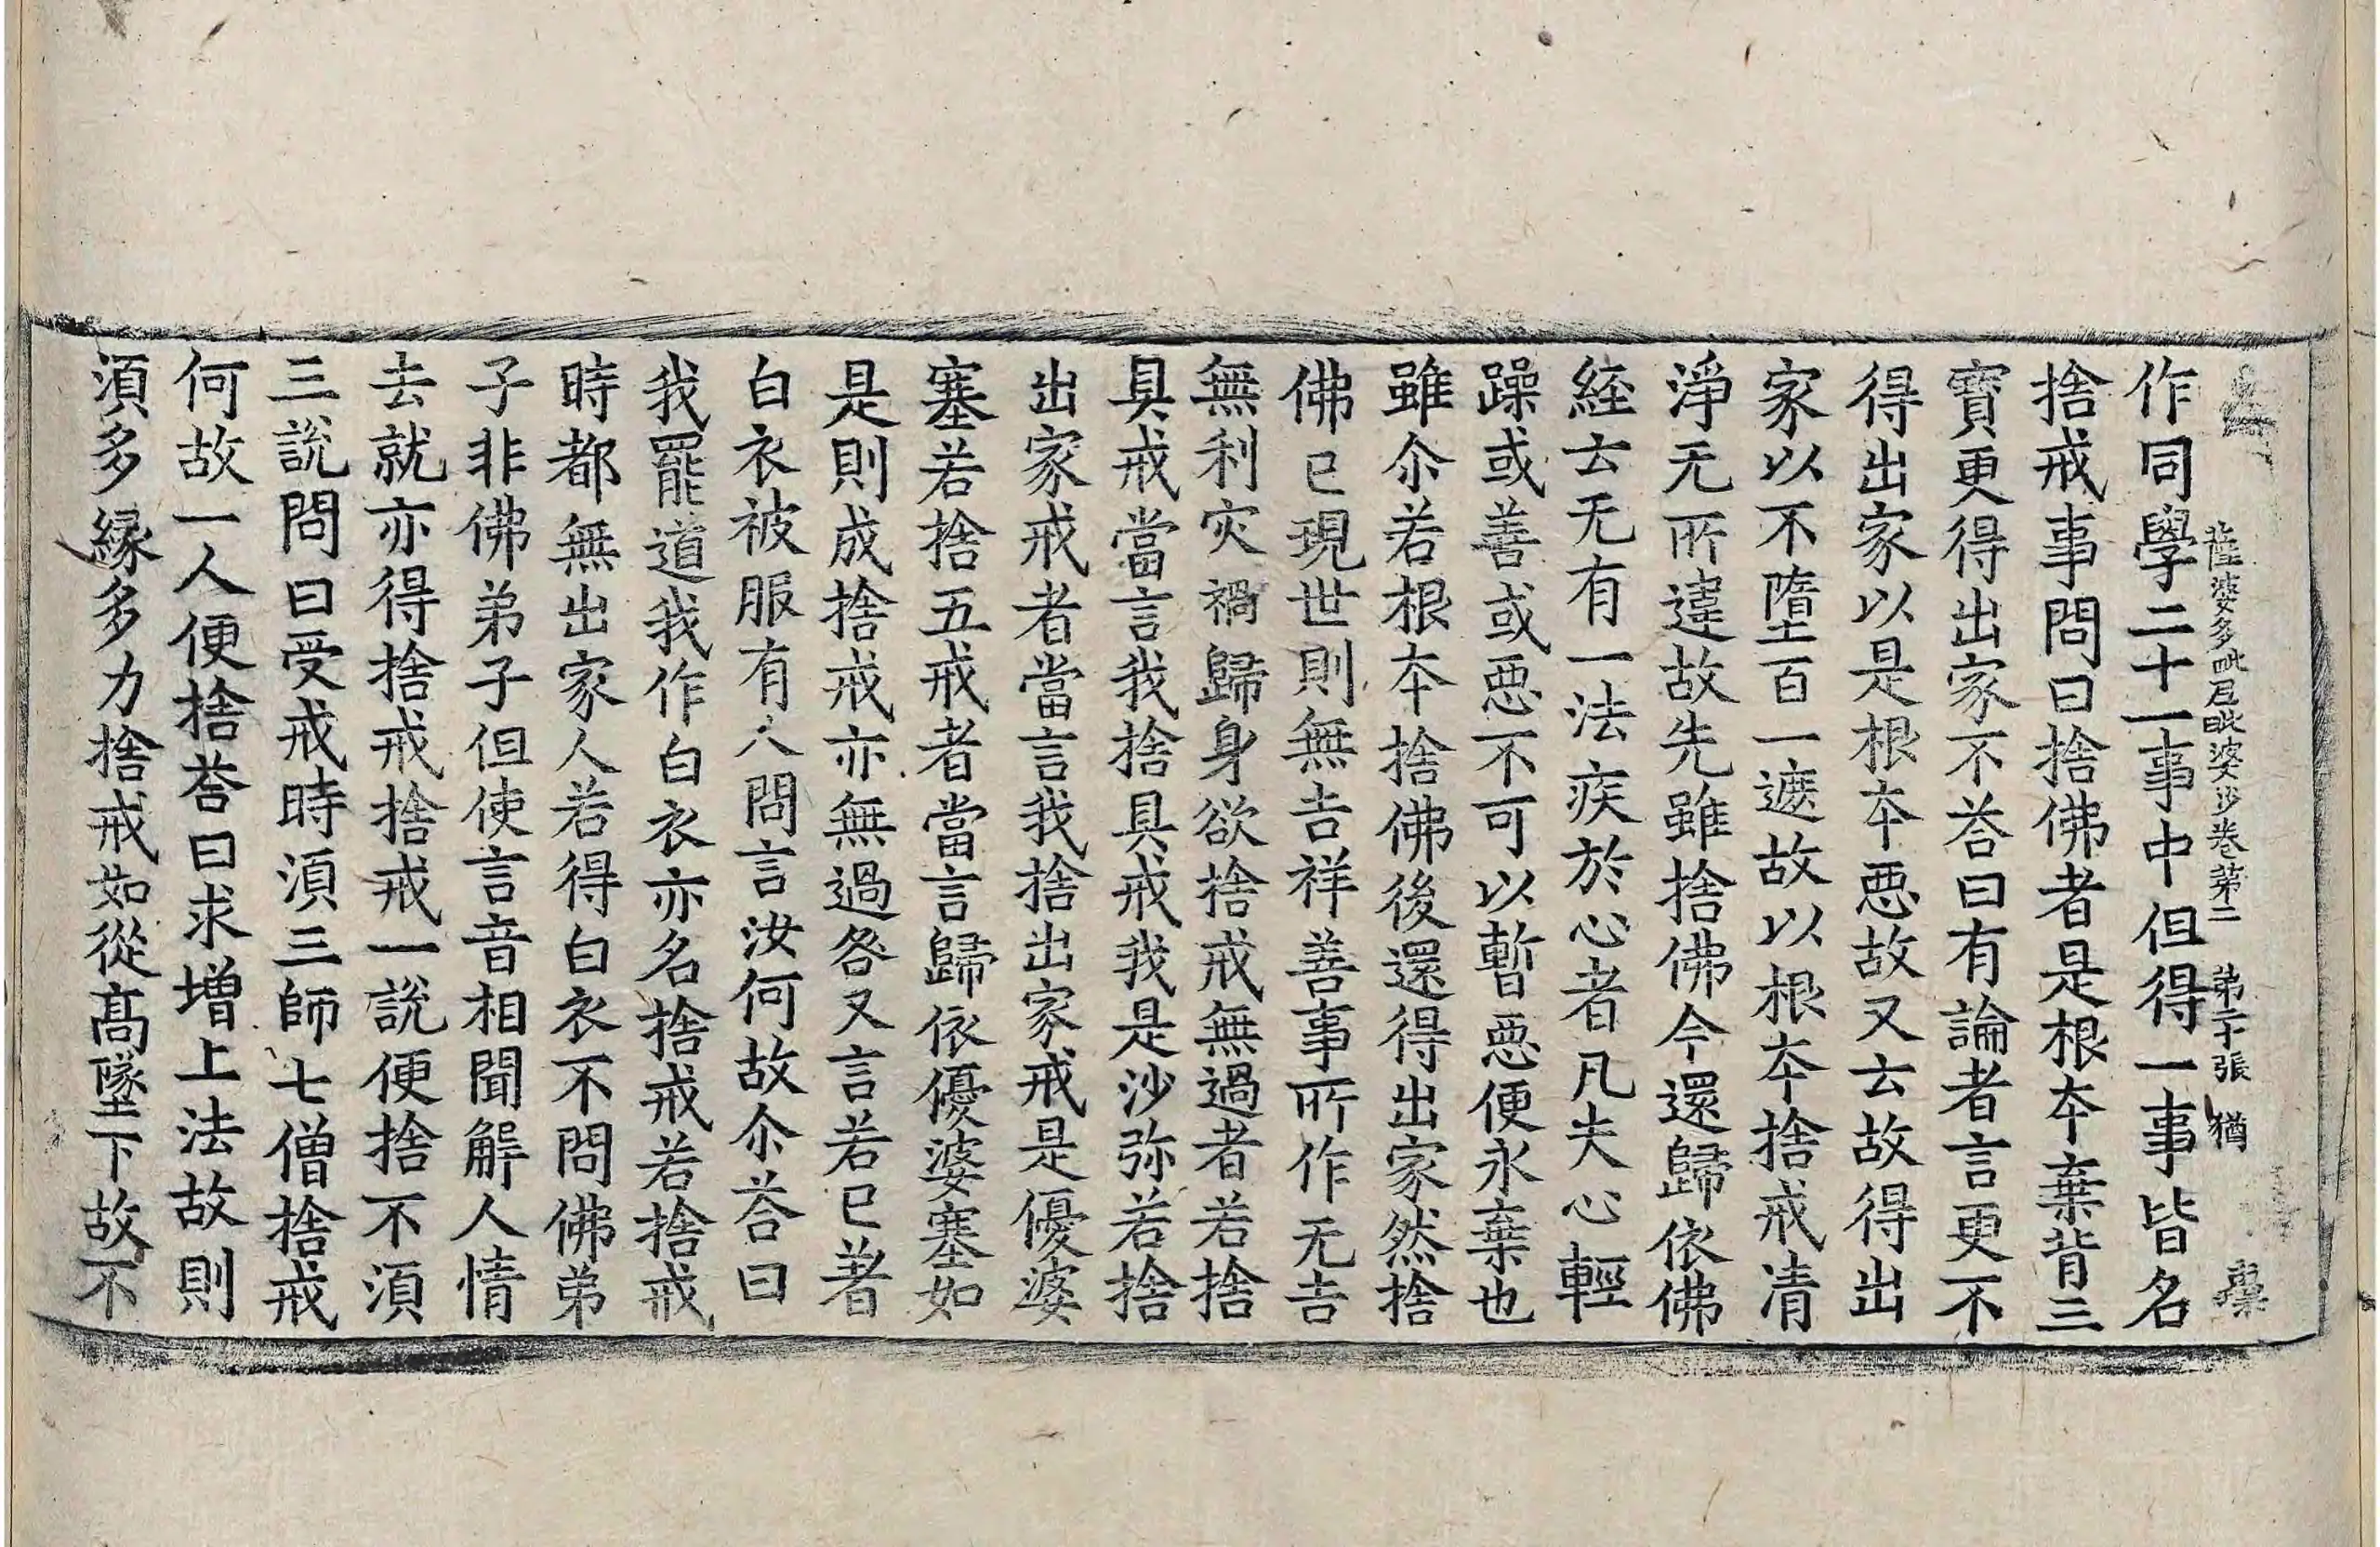 薩婆多毗尼毗婆沙卷第二 第二十張 猶
作同學二十一事中但得一事皆名
捨戒事問曰捨佛者是根夲棄背三
寶更得出家不荅曰有論者言更不
得出家以是根夲惡故又云故得出
家以不墮百一遮故以根夲捨戒清
淨无所違故先雖捨佛今還歸依佛
経云无有一法疾於心者凡夫心輕
躁或善或惡不可以暫惡便永棄也
雖尒若根夲捨佛後還得出家然捨
佛已現世則無吉祥善事所作无吉
無利灾禍歸身欲捨戒無過者若捨
具戒當言我捨具戒我是沙弥若捨
出家戒者當言我捨出家戒是優婆
塞若捨五戒者當言歸依優婆塞如
是則成捨戒亦無過咎又言若已著
白衣被服有人問言汝何故尒荅曰
我罷道我作白衣亦名捨戒若捨戒
時都無出家人若得白衣不問佛弟
子非佛弟子但使言音相聞解人情
去就亦得捨戒捨戒一說便捨不湏
三說問曰受戒時湏三師七僧捨戒
何故一人便捨荅曰求增上法故則
湏多緣多力捨戒如從髙墜下故不